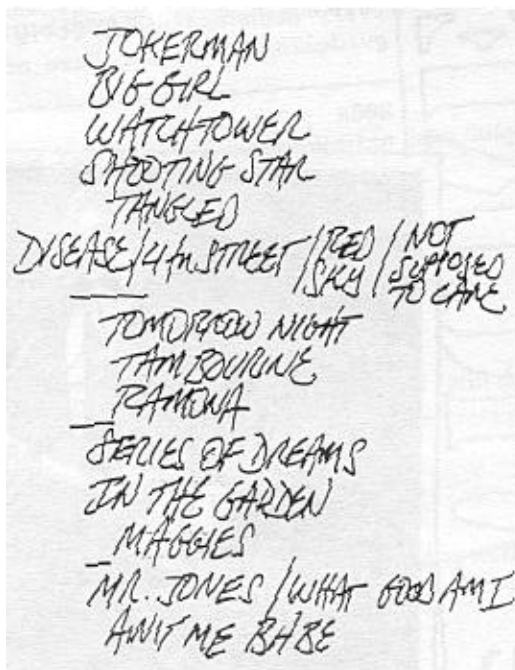 JOKERMAN
BIG GIRL
WATCHTOWER
SHOOTING STAR
TANGLED
DISEASE / 4TH STREET / RED SKY / NOT SUPPOSED TO CARE
TOMORROW NIGHT
TAMBOURINE
RAMONA
SERIES OF DREAMS
IN THE GARDEN
MAGGIES
MR. JONES / WHAT GOOD AM I
AINT ME BABE